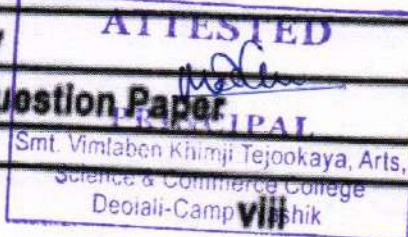 ATTESTED
uestion Paper
PRINCIPAL
Smt. Vimlaben Khimji Tejookaya, Arts,
Science & Commerce College
Deolali-Camp viii shik